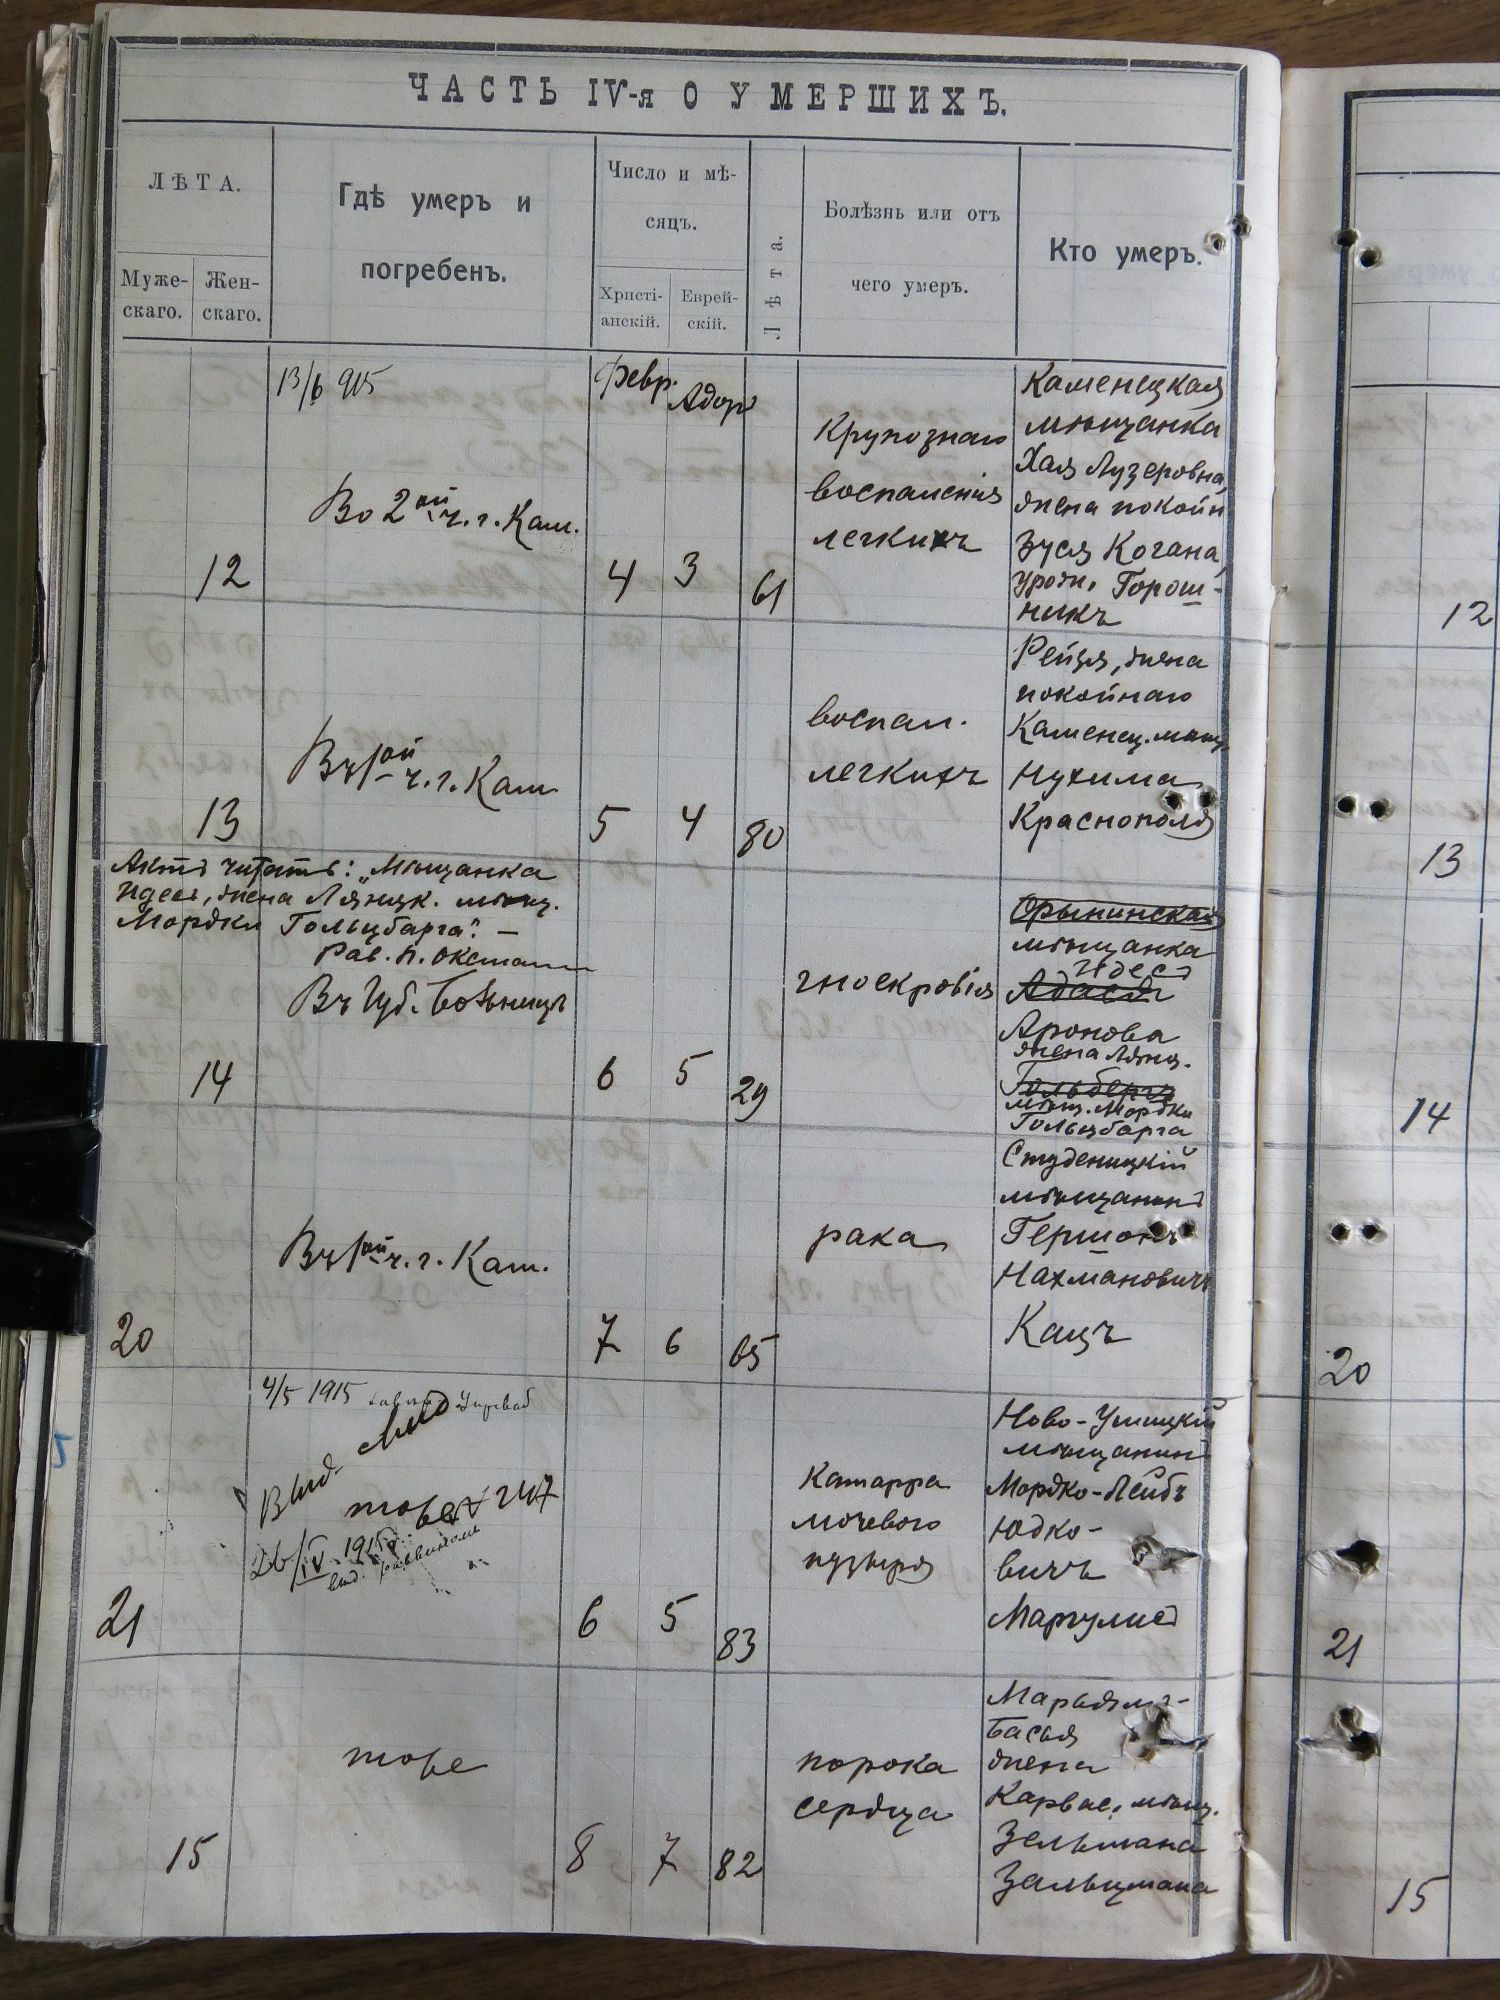 ЧАСТЬ IV-я О УМЕРШИХЪ.
ЛѢТА.
Муже-
скаго.
Жен-
скаго.
Гдѣ умеръ и
погребенъ.
Число и мѣ-
сяцъ.
Христі-
анскій.
Еврей-
скій.
Лѣта.
Болѣзнь или отъ
чего умеръ.
Кто умеръ.
13/6 915
Февр. Адор
12
Во 2ой ч. г. Кам.
4 3 61
Крупознаго
воспаленія
легкихъ
Каменецкая
мѣщанка
Хая Лузеровна,
жена покойн
Зуся Когана,
урожд. Горош-
никъ
12
13
Въ 1ой ч. г. Кам
5 4 80
воспал.
легкихъ
Рейзя, жена
покойнаго
Каменец. мѣщ.
Нухима
Краснополя
13
Актъ читать: „Мѣщанка
Идес, жена Лянцк. мѣщ.
Мордки Гольцбарга". —
Рав. П. Оксман
14
Въ Губ. Больницѣ
6 5 29
гноекровія
Орынинская
мѣщанка
Идес
Адася
Аронова
жена Лянц.
Гольберга
мѣщ. Мордки
Гольцбарга
14
20
Въ 1ой ч. г. Кам.
7 6 65
рака
Студеницкій
мѣщанинъ
Гершонъ
Нахмановичъ
Кацъ
20
4/5 1915
Выд.
тоже 247
26/IV 1915 г.
выд.
21
6 5 83
Катарра
мочевого
пузыря
Ново-Ушицкій
мѣщанинъ
Мордко-Лейбъ
Юдко-
вичъ
Маргулис
21
15
тоже
8 7 82
порока
сердца
Марьямъ-
Бася
жена
Карвас. мѣщ.
Зельмана
Зальцмана
15